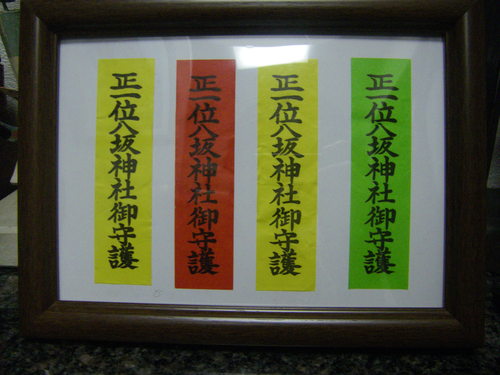 正一位八坂神社御守護
正一位八坂神社御守護
正一位八坂神社御守護
正一位八坂神社御守護